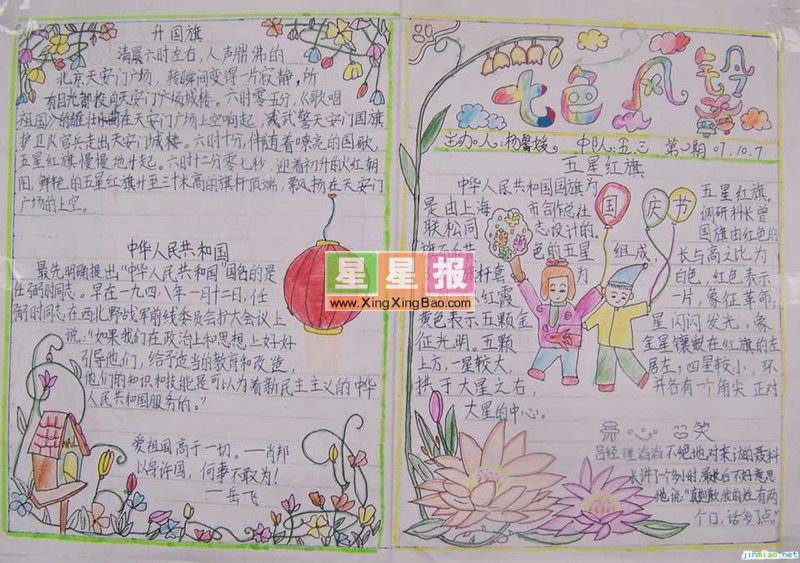 升国旗
清晨六时左右,人声鼎沸的
北京天安门广场,转瞬间变得一片寂静,所
有目光都投向天安门广场城楼。六时零五分,《歌唱
祖国》的雄壮曲在天安门广场上空响起,武警天安门国旗
护卫队官兵走出天安门城楼。六时十分,伴随着嘹亮的国歌,
五星红旗慢慢地升起。六时十二分零七秒,迎着初升的火红朝
阳,鲜艳的五星红旗升至三十米高的旗杆顶端,飘扬在天安门
广场的上空。
中华人民共和国
最先明确提出"中华人民共和国"国名的是
任弼时同志。早在一九四八年一月十二日,任
弼时同志在西北野战军前线委员会扩大会议上
说:"如果我们在政治上和思想上好好
引导他们,给予适当的教育和改造,
他们的知识和技能是可以为着新民主主义的中华
人民共和国服务的。"
爱祖国高于一切。——肖邦
以身许国,何事不敢为!
——岳飞
星星报
www.XingXingBao.com
七色风铃
主办人:杨馨媛 中队:五.三 第2期 07.10.7
五星红旗
中华人民共和国国旗为 五星红旗。
是由上海 市合作总社 调研科长曾
联松同 志设计的。 国旗由红色的
色的五星 组成, 长与高之比为
杆套 为 白色,红色表示
红霞 一片,象征革命,
黄色表示五颗金 星闪闪发光,象
征光明,五颗 金星镶嵌在红旗的左
上方,一星较大, 居左;四星较小,环
拱于大星之右, 并各有一个角尖正对
大星的中心。
国庆节
开心一笑
吕经理滔滔不绝地对来访的
长讲了个小时,
他说:"真抱歉,我的
个口,话多了点。"
jinmiao.net